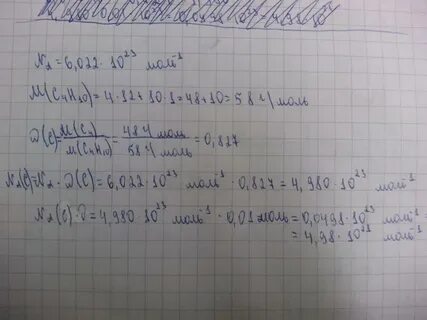 N_A = 6,022 · 10²³ моль⁻¹
M(C₄H₁₀) = 4 · 12 + 10 · 1 = 48 + 10 = 58 г/моль
ω(C) = M(C₄) / M(C₄H₁₀) = 48 г/моль / 58 г/моль = 0,827
N_A(C) = N_A · ω(C) = 6,022 · 10²³ моль⁻¹ · 0,827 = 4,980 · 10²³ моль⁻¹
N_A(C) · ν = 4,980 · 10²³ моль⁻¹ · 0,01 моль = 0,0498 · 10²³ моль⁻¹
= 4,98 · 10²¹ моль⁻¹